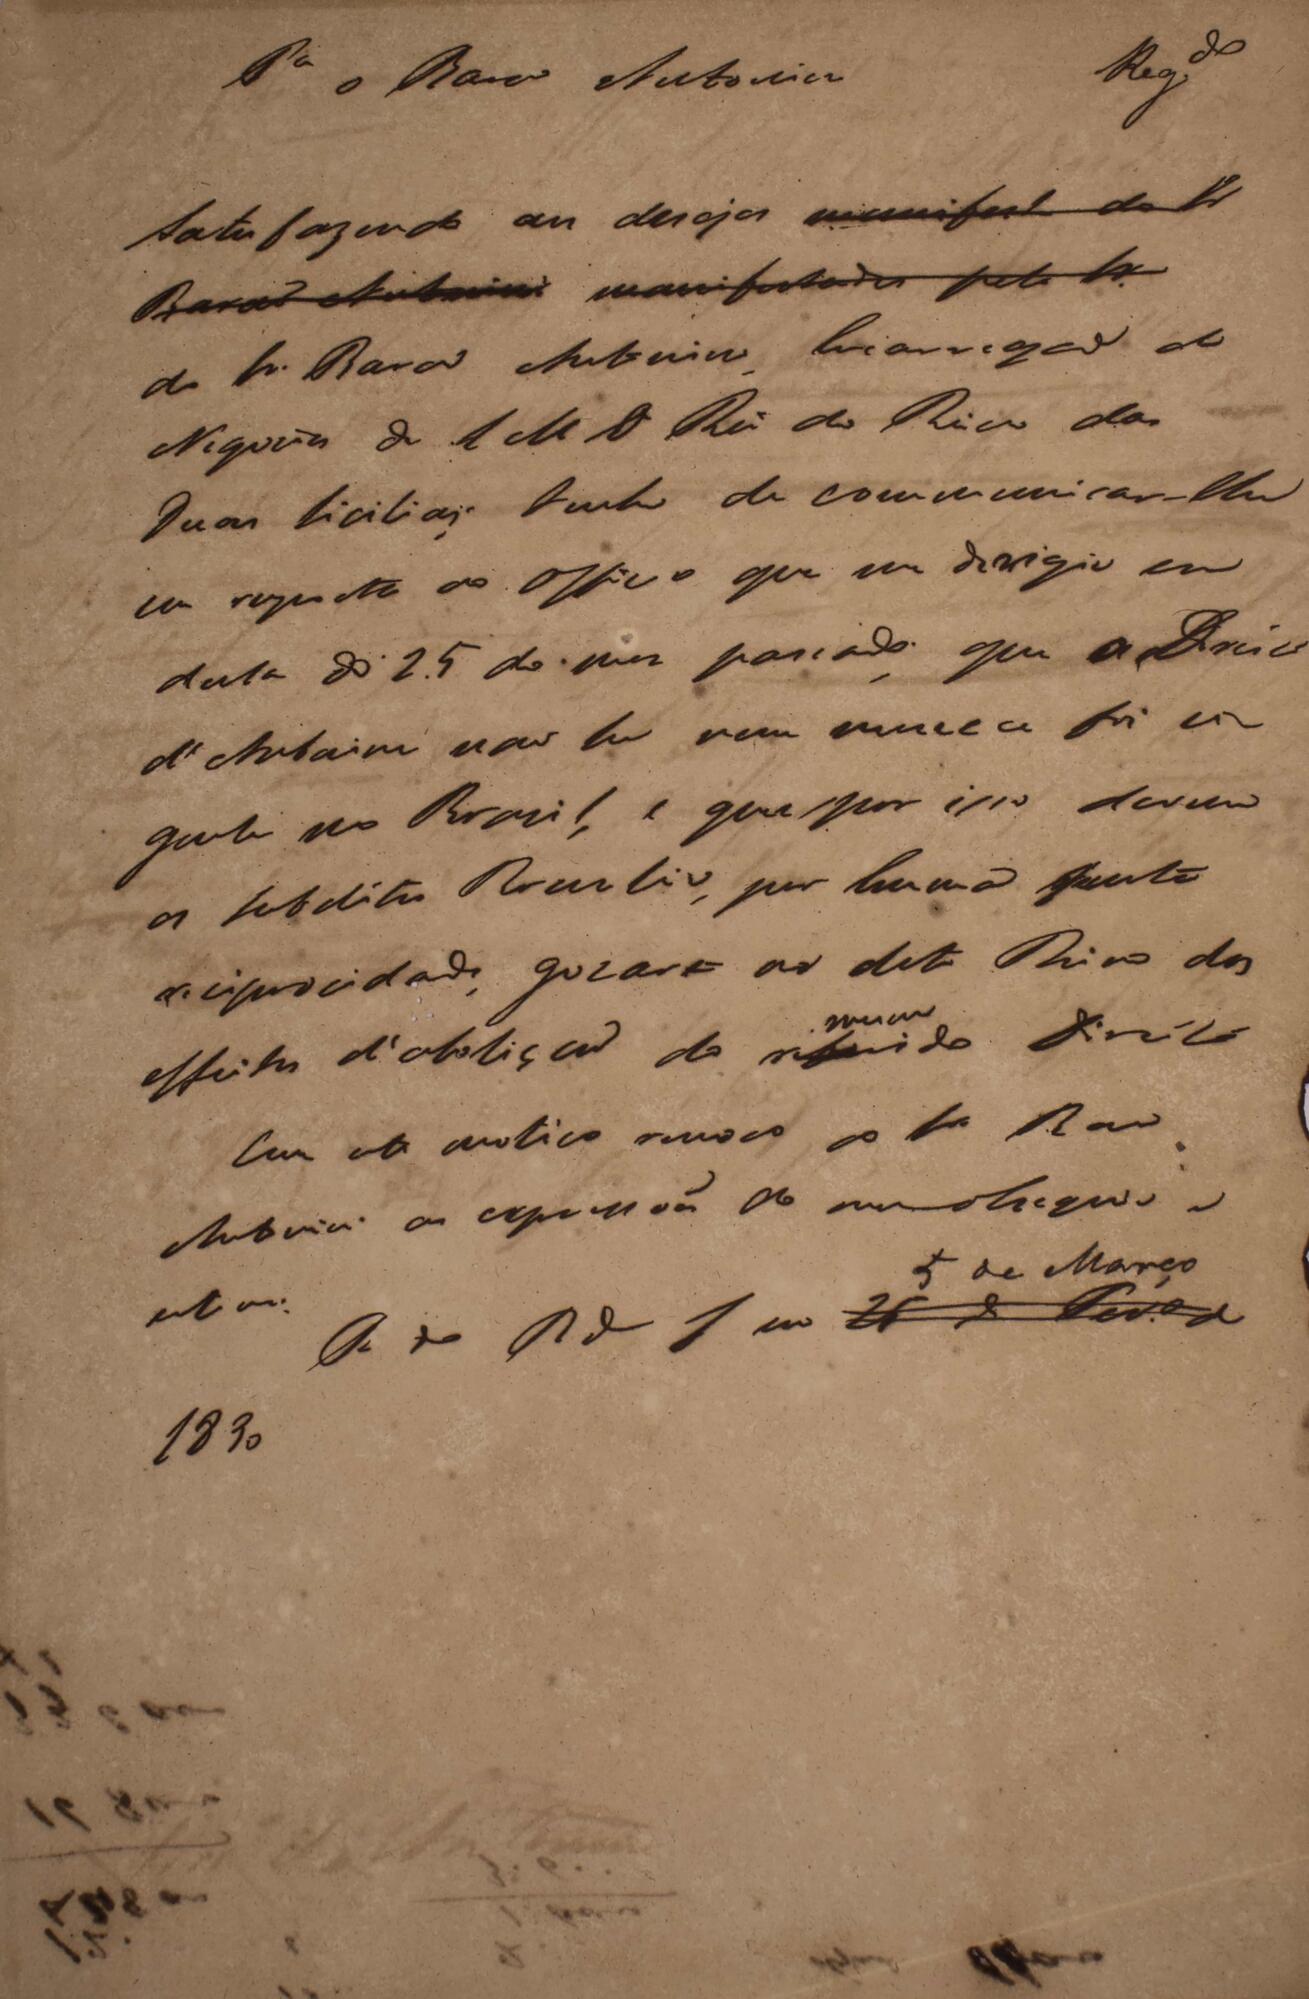 Pa o Barão Antonini Regdo
Satisfazendo aos desejos manifest do Sr
Barão Antonini manifestados pelo Sr.
do Sr. Barão Antonini, Encarregado de
Negocios de S M O Rei do Reino das
Duas Sicilias, tenho de communicar-lhe
em resposta ao officio que me dirigio em
data de 25 do mez passado, que o Direito
d'Aubaine não he nem nunca foi vi
gente no Brasil, e que por isso devem
os subditos Brasileiros, por huma justa
reciprocidade, gozar n'este Reino dos
effeitos d'abolição do referido mesmo Direito
Com este motivo renovo ao Sr Barão
Antonini as expressões de meu obsequio e
estima.
P. do R de J em 25 de Fevo de 5 de Março
1830